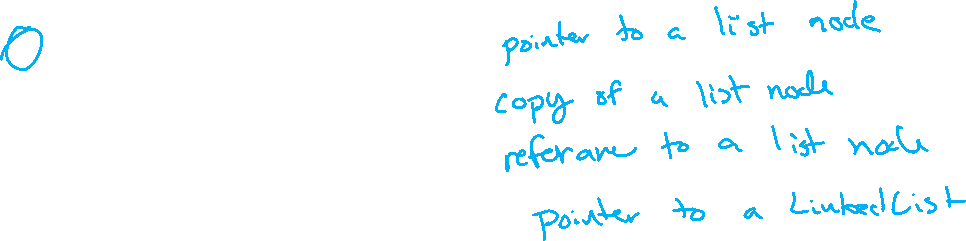 pointer to a list node
copy of a list node
referane to a list node
pointer to a LinkedList